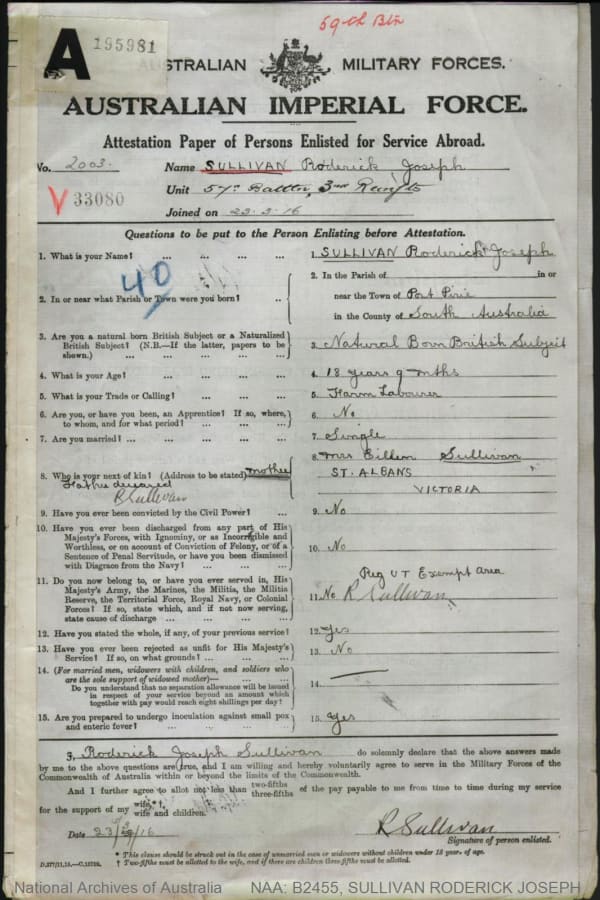 59th Btn
A 195981
AUSTRALIAN MILITARY FORCES.
AUSTRALIAN IMPERIAL FORCE.
Attestation Paper of Persons Enlisted for Service Abroad.
No. 2003. Name SULLIVAN Roderick Joseph
V 33080
Unit 57th Battn, 3rd Reinfts
Joined on 23.3.16
Questions to be put to the Person Enlisting before Attestation.
1. What is your Name? ... ... ... ... 1. SULLIVAN Roderick Joseph
40
2. In or near what Parish or Town were you born? ... 2. In the Parish of in or
near the Town of Port Pirie
in the County of South Australia
3. Are you a natural born British Subject or a Naturalized
British Subject? (N.B.—If the latter, papers to be
shown.) ... ... ... ... 3. Natural Born British Subject
4. What is your Age? ... ... ... ... 4. 18 years 9 mths
5. What is your Trade or Calling? ... ... ... 5. Farm Labourer
6. Are you, or have you been, an Apprentice? If so, where,
to whom, and for what period? ... ... ... 6. No
7. Are you married? ... ... ... ... 7. Single
8. Who is your next of kin? (Address to be stated) mother
Father deceased
R Sullivan
8. Mrs Eillem Sullivan
ST. ALBANS
VICTORIA
9. Have you ever been convicted by the Civil Power? ... 9. No
10. Have you ever been discharged from any part of His
Majesty's Forces, with Ignominy, or as Incorrigible and
Worthless, or on account of Conviction of Felony, or of a
Sentence of Penal Servitude, or have you been dismissed
with Disgrace from the Navy? ... ... ... 10. No
11. Do you now belong to, or have you ever served in, His
Majesty's Army, the Marines, the Militia, the Militia
Reserve, the Territorial Force, Royal Navy, or Colonial
Forces? If so, state which, and if not now serving,
state cause of discharge ... ... ...
Reg U T Exempt Area
11. No R Sullivan
12. Have you stated the whole, if any, of your previous service? 12. Yes
13. Have you ever been rejected as unfit for His Majesty's
Service? If so, on what grounds? ... ... ... 13. No
14. (For married men, widowers with children, and soldiers who
are the sole support of widowed mother)—
Do you understand that no separation allowance will be issued
in respect of your service beyond an amount which
together with pay would reach eight shillings per day? 14. —
15. Are you prepared to undergo inoculation against small pox
and enteric fever? ... ... ... ... 15. Yes
I, Roderick Joseph Sullivan do solemnly declare that the above answers made
by me to the above questions are true, and I am willing and hereby voluntarily agree to serve in the Military Forces of the
Commonwealth of Australia within or beyond the limits of the Commonwealth.
And I further agree to allot not less than two-fifths three-fifths of the pay payable to me from time to time during my service
for the support of my wife,*† wife and children.
Date 23/3/16 R Sullivan
Signature of person enlisted.
* This clause should be struck out in the case of unmarried men or widowers without children under 18 years of age.
† Two-fifths must be allotted to the wife, and if there are children three-fifths must be allotted.
National Archives of Australia NAA: B2455, SULLIVAN RODERICK JOSEPH